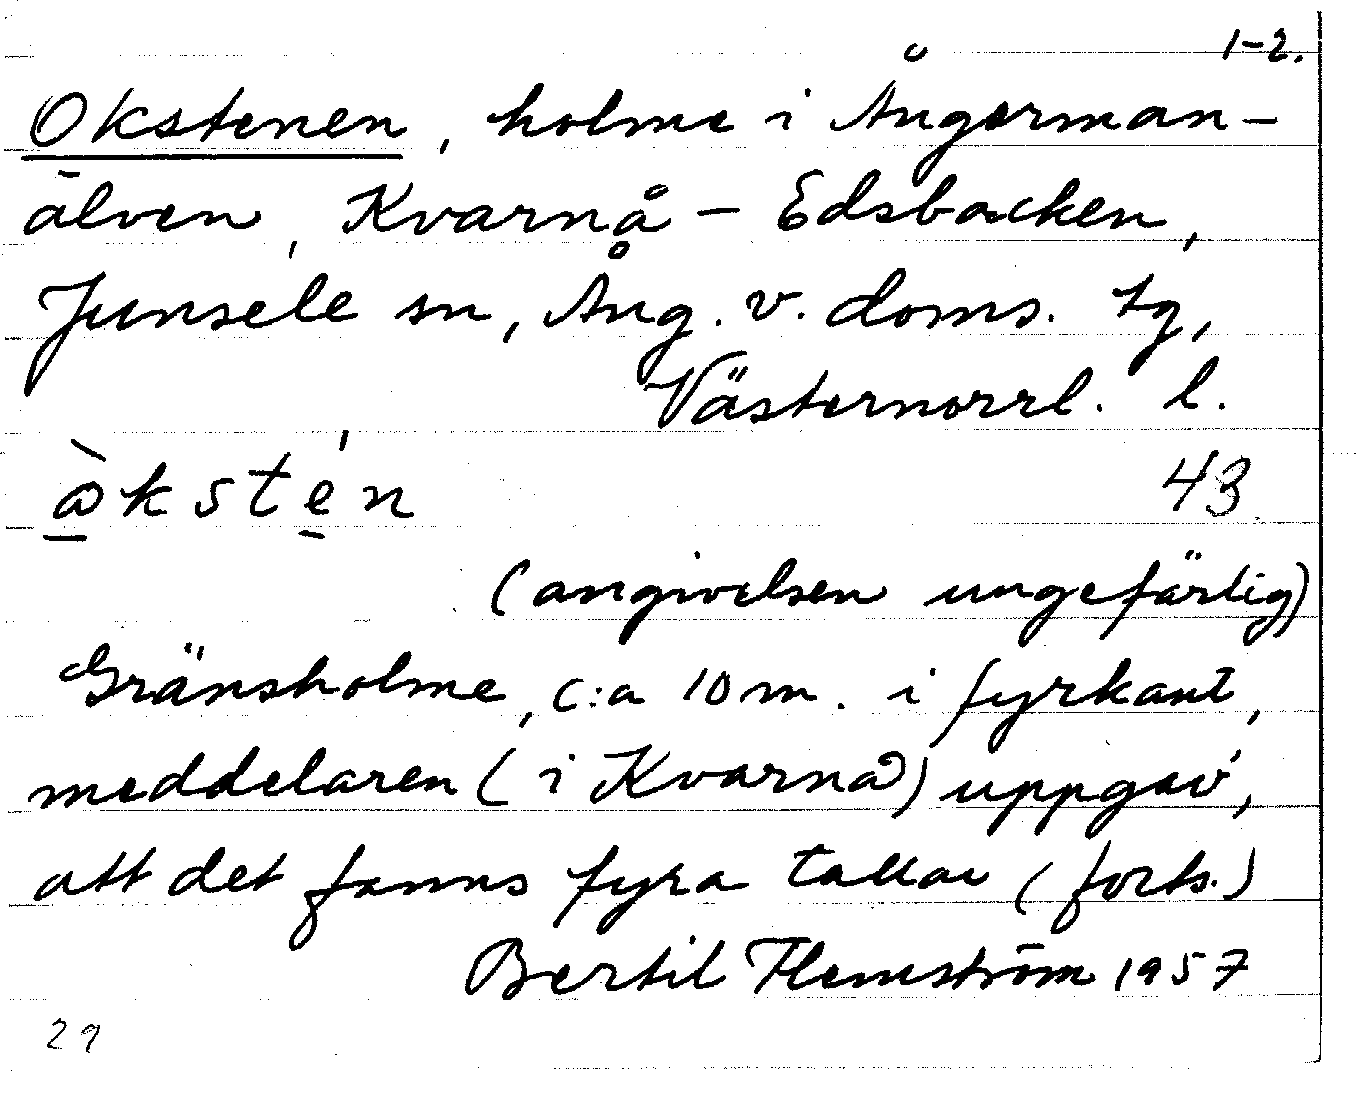 1-2.
Okstenen, holme i Ångerman-
älven, Kvarnå - Edsbacken,
Junsele sn, Ång. v. doms. tg,
Västernorrl. l.
òkstén 43
(angivelsen ungefärlig)
Gränsholme, c:a 10 m. i fyrkant,
meddelaren (i Kvarnå) uppgav,
att det fanns fyra tallar (forts.)
Bertil Flemström 1957
29